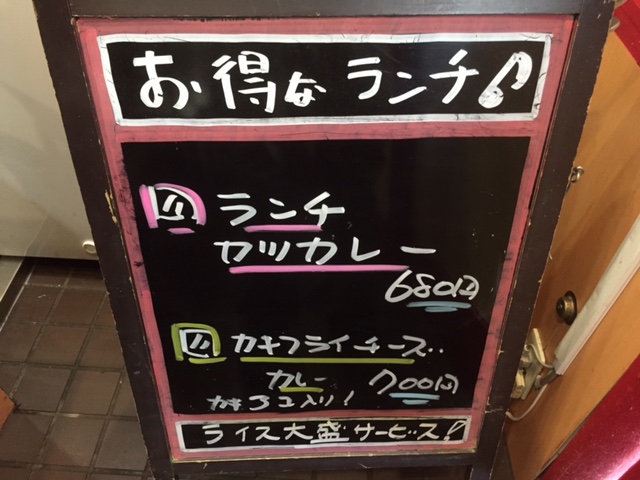 お得なランチ♪
ランチ
カツカレー
680円
カキフライチーズ
カレー 700円
カキ3コ入り!
ライス大盛サービス!